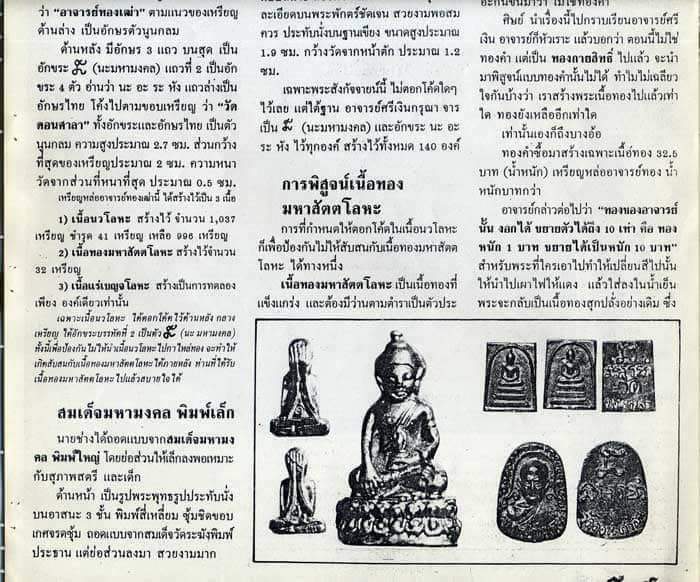 ว่า "อาจารย์ทองเฒ่า" ตามแนวของเหรียญ
ด้านล่าง เป็นอักษรตัวนูนกลม
ด้านหลัง มีอักษร 3 แถว บนสุด เป็น
อักขระ (นะมหามงคล) แถวที่ 2 เป็นอักขระ
ขระ 4 ตัว อ่านว่า นะ อะ ระ หัง แถวล่างเป็น
อักษรไทย โค้งไปตามขอบเหรียญ ว่า "วัด
ดอนศาลา" ทั้งอักขระและอักษรไทย เป็นตัว
นูนกลม ความสูงประมาณ 2.7 ซม. ส่วนกว้าง
ที่สุดของเหรียญประมาณ 2 ซม. ความหนา
วัดจากส่วนที่หนาที่สุด ประมาณ 0.5 ซม.
เหรียญหล่ออาจารย์ทองเฒ่านี้ ได้สร้างไว้เป็น 3 เนื้อ
1) เนื้อนวโลหะ สร้างไว้ จำนวน 1,037
เหรียญ ชำรุด 41 เหรียญ เหลือ 996 เหรียญ
2) เนื้อทองมหาสัตตโลหะ สร้างไว้จำนวน
32 เหรียญ
3) เนื้อแร่เบญจโลหะ สร้างเป็นการทดลอง
เพียง องค์เดียวเท่านั้น
เฉพาะเนื้อนวโลหะ ได้ตอกโค้ดไว้ด้านหลัง กลาง
เหรียญ ใต้อักขระบรรทัดที่ 2 เป็นตัว (นะ มหามงคล)
ทั้งนี้เพื่อป้องกันไม่ให้นำเนื้อนวโลหะไปกาไหล่ทอง จะทำให้
เกิดสับสนกับเนื้อทองมหาสัตตโลหะได้ภายหลัง ท่านที่ได้รับ
เนื้อทองมหาสัตตโลหะไปแล้วสบายใจได้
สมเด็จมหามงคล พิมพ์เล็ก
นายช่างได้ถอดแบบจากสมเด็จมหามง
คล พิมพ์ใหญ่ โดยย่อส่วนให้เล็กลงพอเหมาะ
กับสุภาพสตรี และเด็ก
ด้านหน้า เป็นรูปพระพุทธรูปประทับนั่ง
บนอาสนะ 3 ชั้น พิมพ์สี่เหลี่ยม ซุ้มชิดขอบ
เกศจรดซุ้ม ถอดแบบจากสมเด็จวัดระฆังพิมพ์
ประธาน แต่ย่อส่วนลงมา สวยงามมาก
ละเอียดบนพระพักตร์ชัดเจน สวยงามพอสม
ควร ประทับนั่งบนฐานเขียง ขนาดสูงประมาณ
1.9 ซม. กว้างวัดจากหน้าตัก ประมาณ 1.2
ซม.
เฉพาะพระสังกัจจายน์นี้ ไม่ตอกโค้ดใดๆ
ไว้เลย แต่ใต้ฐาน อาจารย์ศรีเงินกรุณา จาร
เป็น (นะมหามงคล) และอักขระ นะ อะ
ระ หัง ไว้ทุกองค์ สร้างไว้ทั้งหมด 140 องค์
การพิสูจน์เนื้อทอง
มหาสัตตโลหะ
การที่กำหนดให้ตอกโค้ดในเนื้อนวโลหะ
ก็เพื่อป้องกันไม่ให้สับสนกับเนื้อทองมหาสัตต
โลหะ ได้ทางหนึ่ง
เนื้อทองมหาสัตตโลหะ เป็นเนื้อทองที่
แข็งแกร่ง และต้องมีว่านตามตำราเป็นตัวประ
ศิษย์ นำเรื่องนี้ไปกราบเรียนอาจารย์ศรี
เงิน อาจารย์ก็หัวเราะ แล้วบอกว่า ตอนนี้ไม่ใช่
ทองคำ แต่เป็น ทองกายสิทธิ์ ไปแล้ว จะนำ
มาพิสูจน์แบบทองคำนั้นไม่ได้ ทำไมไม่เฉลียว
ใจกันบ้างว่า เราสร้างพระเนื้อทองไปแล้วเท่า
ใด ทองยังเหลืออีกเท่าใด
เท่านั้นเองก็ถึงบางอ้อ
ทองคำซื้อมาสร้างเฉพาะเนื้อทอง 32.5
บาท (น้ำหนัก) เหรียญหล่ออาจารย์ทอง น้ำ
หนักบาทกว่า
อาจารย์กล่าวต่อไปว่า "ทองของอาจารย์
นั้น งอกได้ ขยายตัวได้ถึง 10 เท่า คือ ทอง
หนัก 1 บาท ขยายได้เป็นหนัก 10 บาท"
สำหรับพระที่ใครเอาไปทำให้เปลี่ยนสีไปนั้น
ให้นำไปเผาไฟให้แดง แล้วใส่ลงในน้ำเย็น
พระจะกลับเป็นเนื้อทองสุกปลั่งอย่างเดิม ซึ่ง